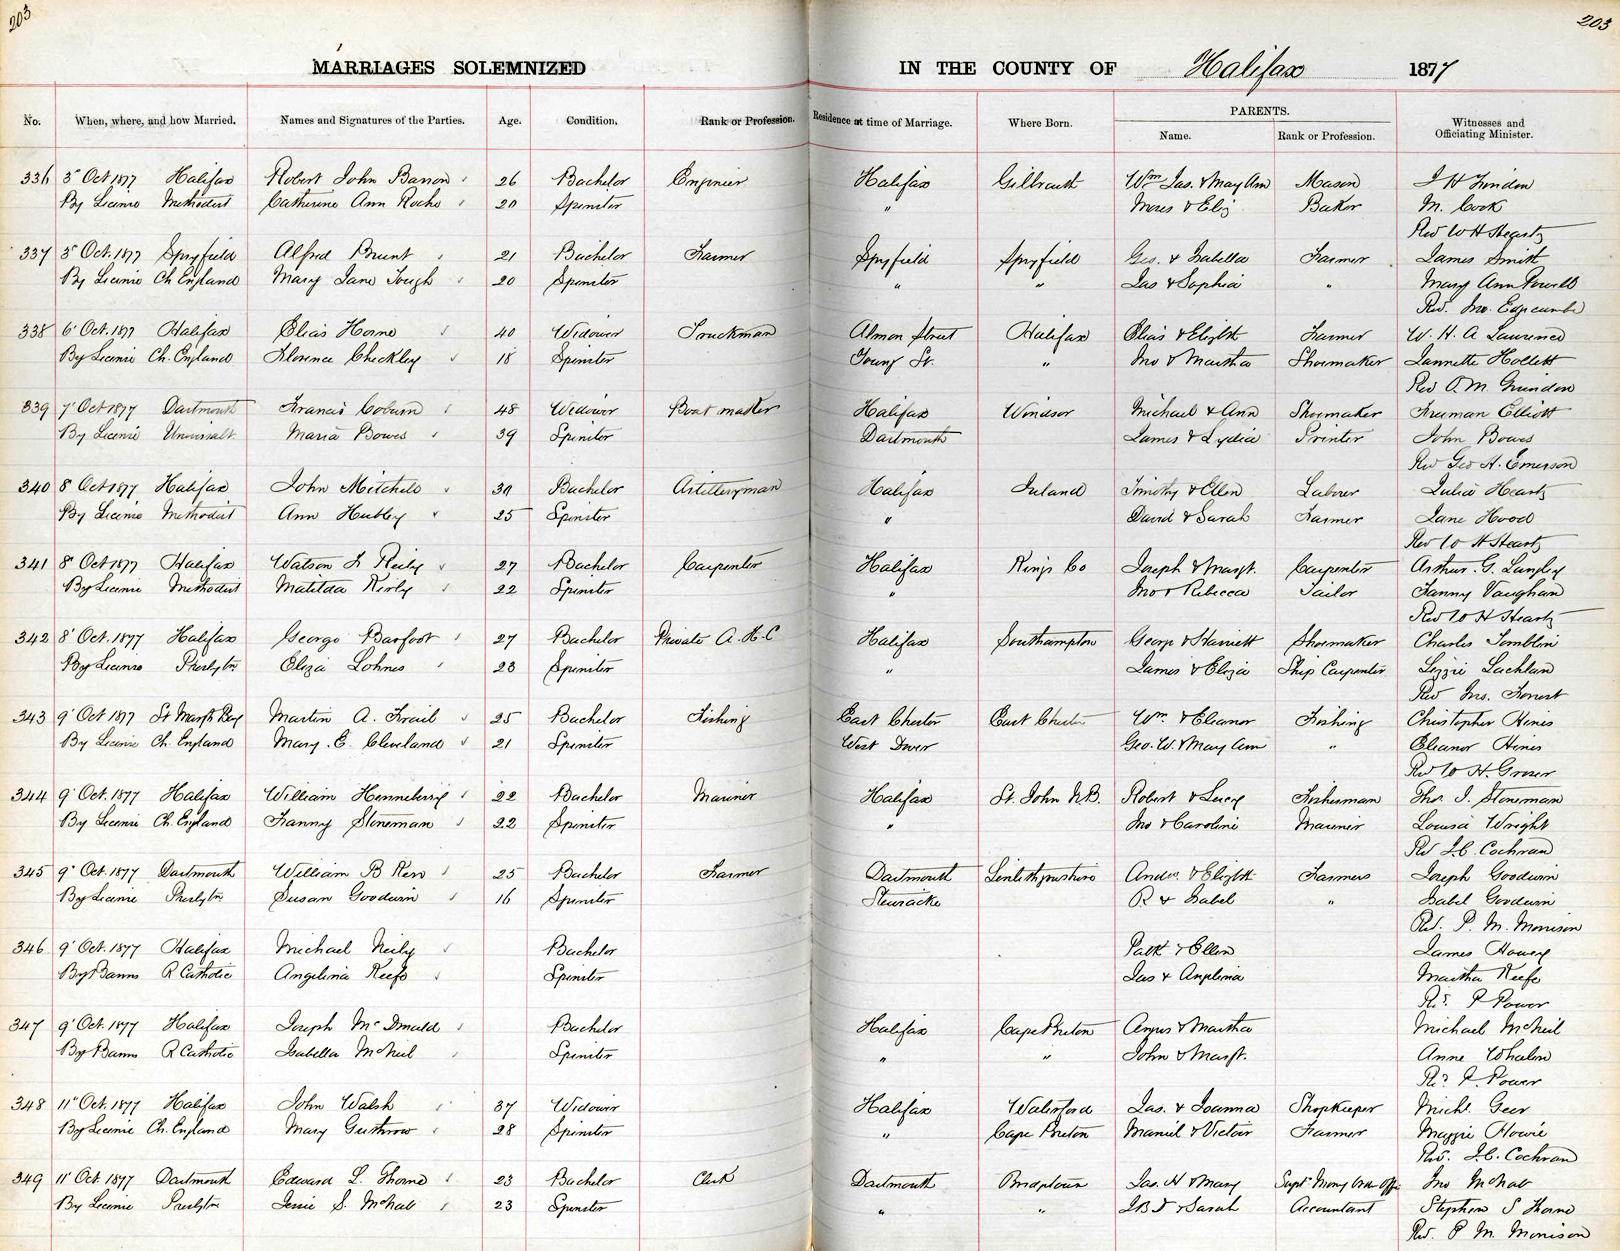 203 203
MARRIAGES SOLEMNIZED IN THE COUNTY OF Halifax 1877
PARENTS.
No. When, where, and how Married. Names and Signatures of the Parties. Age. Condition. Rank or Profession. Residence at time of Marriage. Where Born. Name. Rank or Profession. Witnesses and Officiating Minister.
336 3' Oct 1877 Halifax Robert John Barron 26 Bachelor Engineer Halifax Wm Jas. & Mary Ann Mason
By Licence Methodist Catherine Ann Roche 20 Spinster " Moses & Eliz Baker M. Cook
Rev W H Heartz
337 3' Oct. 1877 Spryfield Alfred Brunt 21 Bachelor Farmer Spryfield Spryfield Geo. & Isabella Farmer James Smith
By Licence Ch England Mary Jane Tough 20 Spinster " " Jas & Sophia " Mary Ann Powell
Rev. Jno. Edgcumbe
338 6' Oct. 1877 Halifax Elias Horne 40 Widower Truckman Almon Street Halifax Elias & Elizbth Farmer W. H. A Lawrence
By Licence Ch. England Florence Checkley 18 Spinster Young St. " Jno & Martha Shoemaker Jannette Hollett
Rev O. M. Grindon
339 7' Oct 1877 Dartmouth Francis Coburn 48 Widower Boat master Halifax Windsor Michael & Ann Shoemaker Freeman Elliott
By Licence Universalt. Maria Bowes 39 Spinster Dartmouth James & Lydia Printer John Bowes
Rev Geo H. Emerson
340 8' Oct 1877 Halifax John Mitchell Bachelor Artilleryman Halifax Ireland Timothy & Ellen Laborer Julia Heartz
By Licence Methodist Ann Hubley 25 Spinster " David & Sarah Farmer Jane Hood
Rev W H Heartz
341 8' Oct 1877 Halifax Watson F Reily 27 Bachelor Carpenter Halifax Kings Co Joseph & Margt. Carpenter Arthur. G. Langley
By Licence Methodist Matilda Kerby 22 Spinster " Jno & Rebecca Tailor Fanny Vaughan
Rev W H Heartz
342 8' Oct. 1877 Halifax George Barfoot 27 Bachelor Private A. H. C Halifax Southampton George & Harriett Shoemaker Charles Tomblin
By Licence Presbytn Eliza Lohnes 23 Spinster " James & Eliza Ship Carpenter Lizzie Lachlan
Rev Jno. Forrest
343 9' Oct 1877 St Margts Bay Martin A. Frail 25 Bachelor Fishing East Chester East Chester Wm. & Eleanor Fishing Christopher Hines
By Licence Ch. England Mary. E. Cleveland 21 Spinster West Dover Geo. W. & Mary Ann " Eleanor Hines
Rev W H. Groser
344 9' Oct. 1877 Halifax William Henneberry 22 Bachelor Mariner Halifax St. John N.B. Robert & Lucy Fisherman Thos J. Stoneman
By Licence Ch. England Fanny Stoneman 22 Spinster " Jno & Caroline Mariner Louisa Wright
Rev J. C. Cochran
345 9' Oct. 1877 Dartmouth William B Kerr 25 Bachelor Farmer Dartmouth Linlithgowshire Andw. & Elizbth Farmers Joseph Goodwin
By Licence Presbytn Susan Goodwin 16 Spinster Stewiacke R & Isabel " Isabel Goodwin
Rev. P. M. Morrison
346 9' Oct. 1877 Halifax Michael Neily Bachelor Patk & Ellen James Howey
By Banns R Catholic Angelina Keefe Spinster Jas & Angelina Martha Keefe
Rev. P Power
347 9' Oct. 1877 Halifax Joseph McDonald Bachelor Halifax Cape Breton Angus & Martha Michael McNeil
By Banns R Catholic Isabella McNeil Spinster " " John & Margt. Anne Whealen
Rev. P. Power
348 11' Oct. 1877 Halifax John Walsh 37 Widower Halifax Waterford Jas. & Joanna Shopkeeper Michl. Geer
By Licence Ch. England Mary Guthrow 28 Spinster " Cape Breton Maniel & Victoir Farmer Maggie Howie
Rev. J. C. Cochran
349 11' Oct 1877 Dartmouth Edward L. Thorne 23 Bachelor Clerk Dartmouth Bridgetown Jas. H & Mary Supt Money Order Offi Jno McNab
By Licence Presbytn Jessie S. McNab 23 Spinster " " J B D & Sarah Accountant Stephen S Thorne
Rev. P M. Morrison